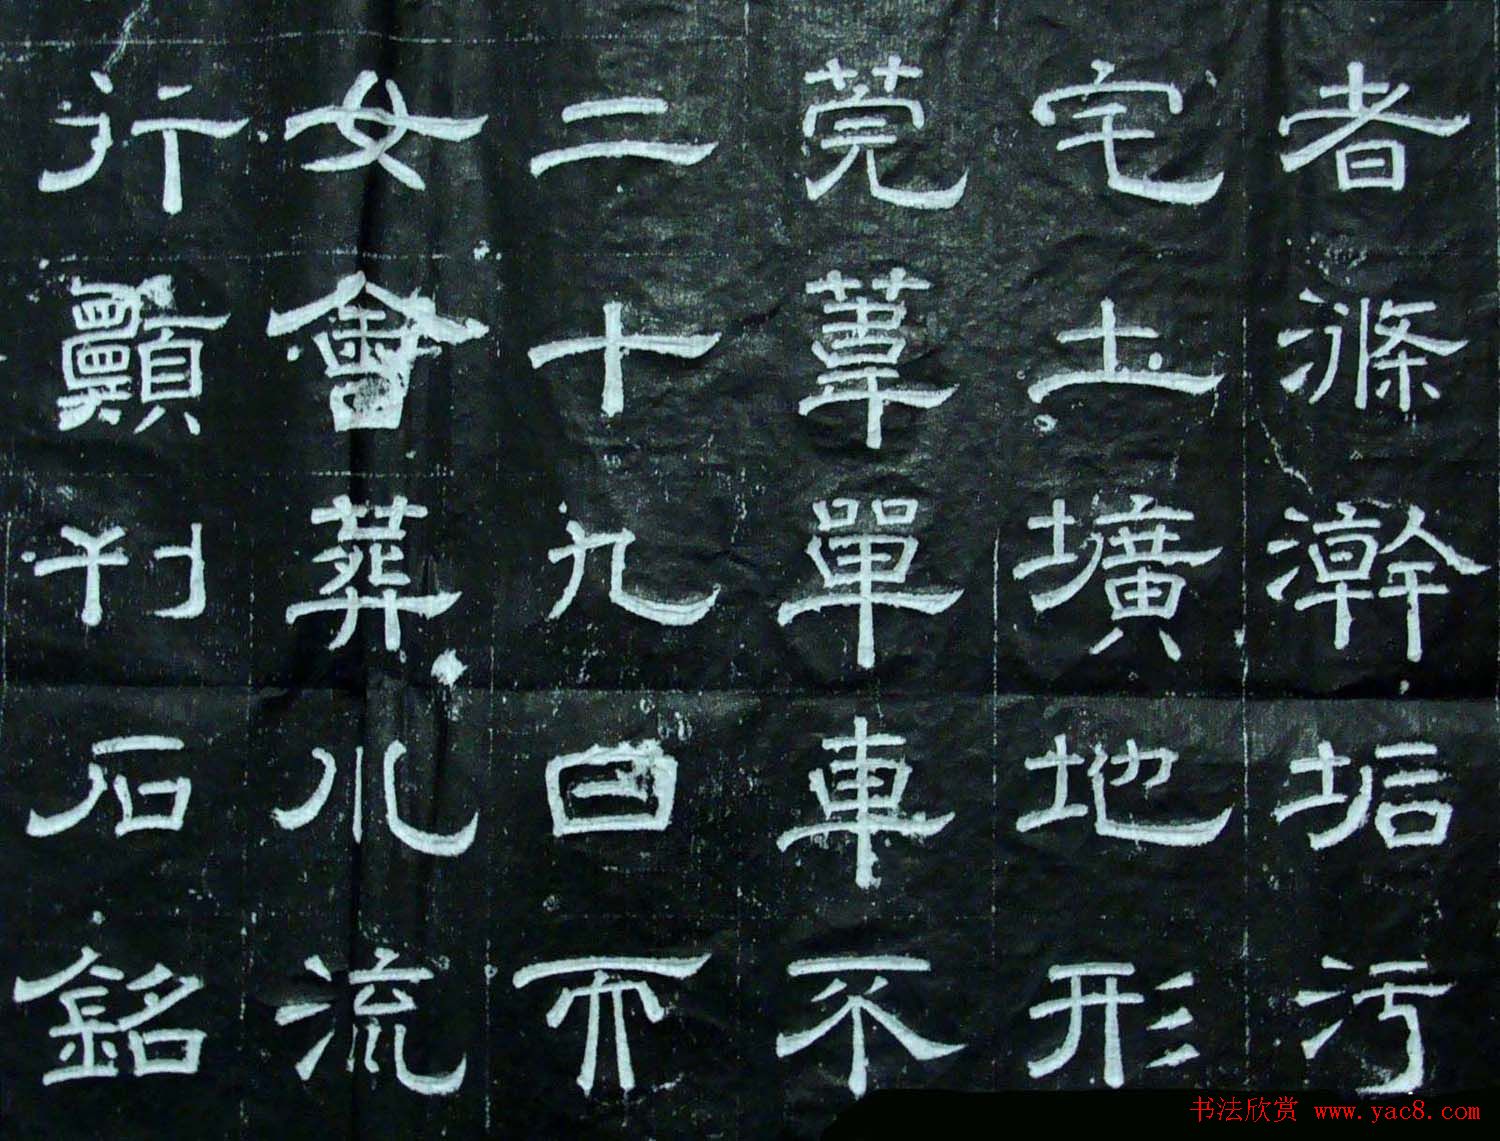 者滌澣垢污
宅土壙地形
莞葦單車不
二十九日而
女會葬川流
行顯刊石銘
书法欣赏 www.yac8.com